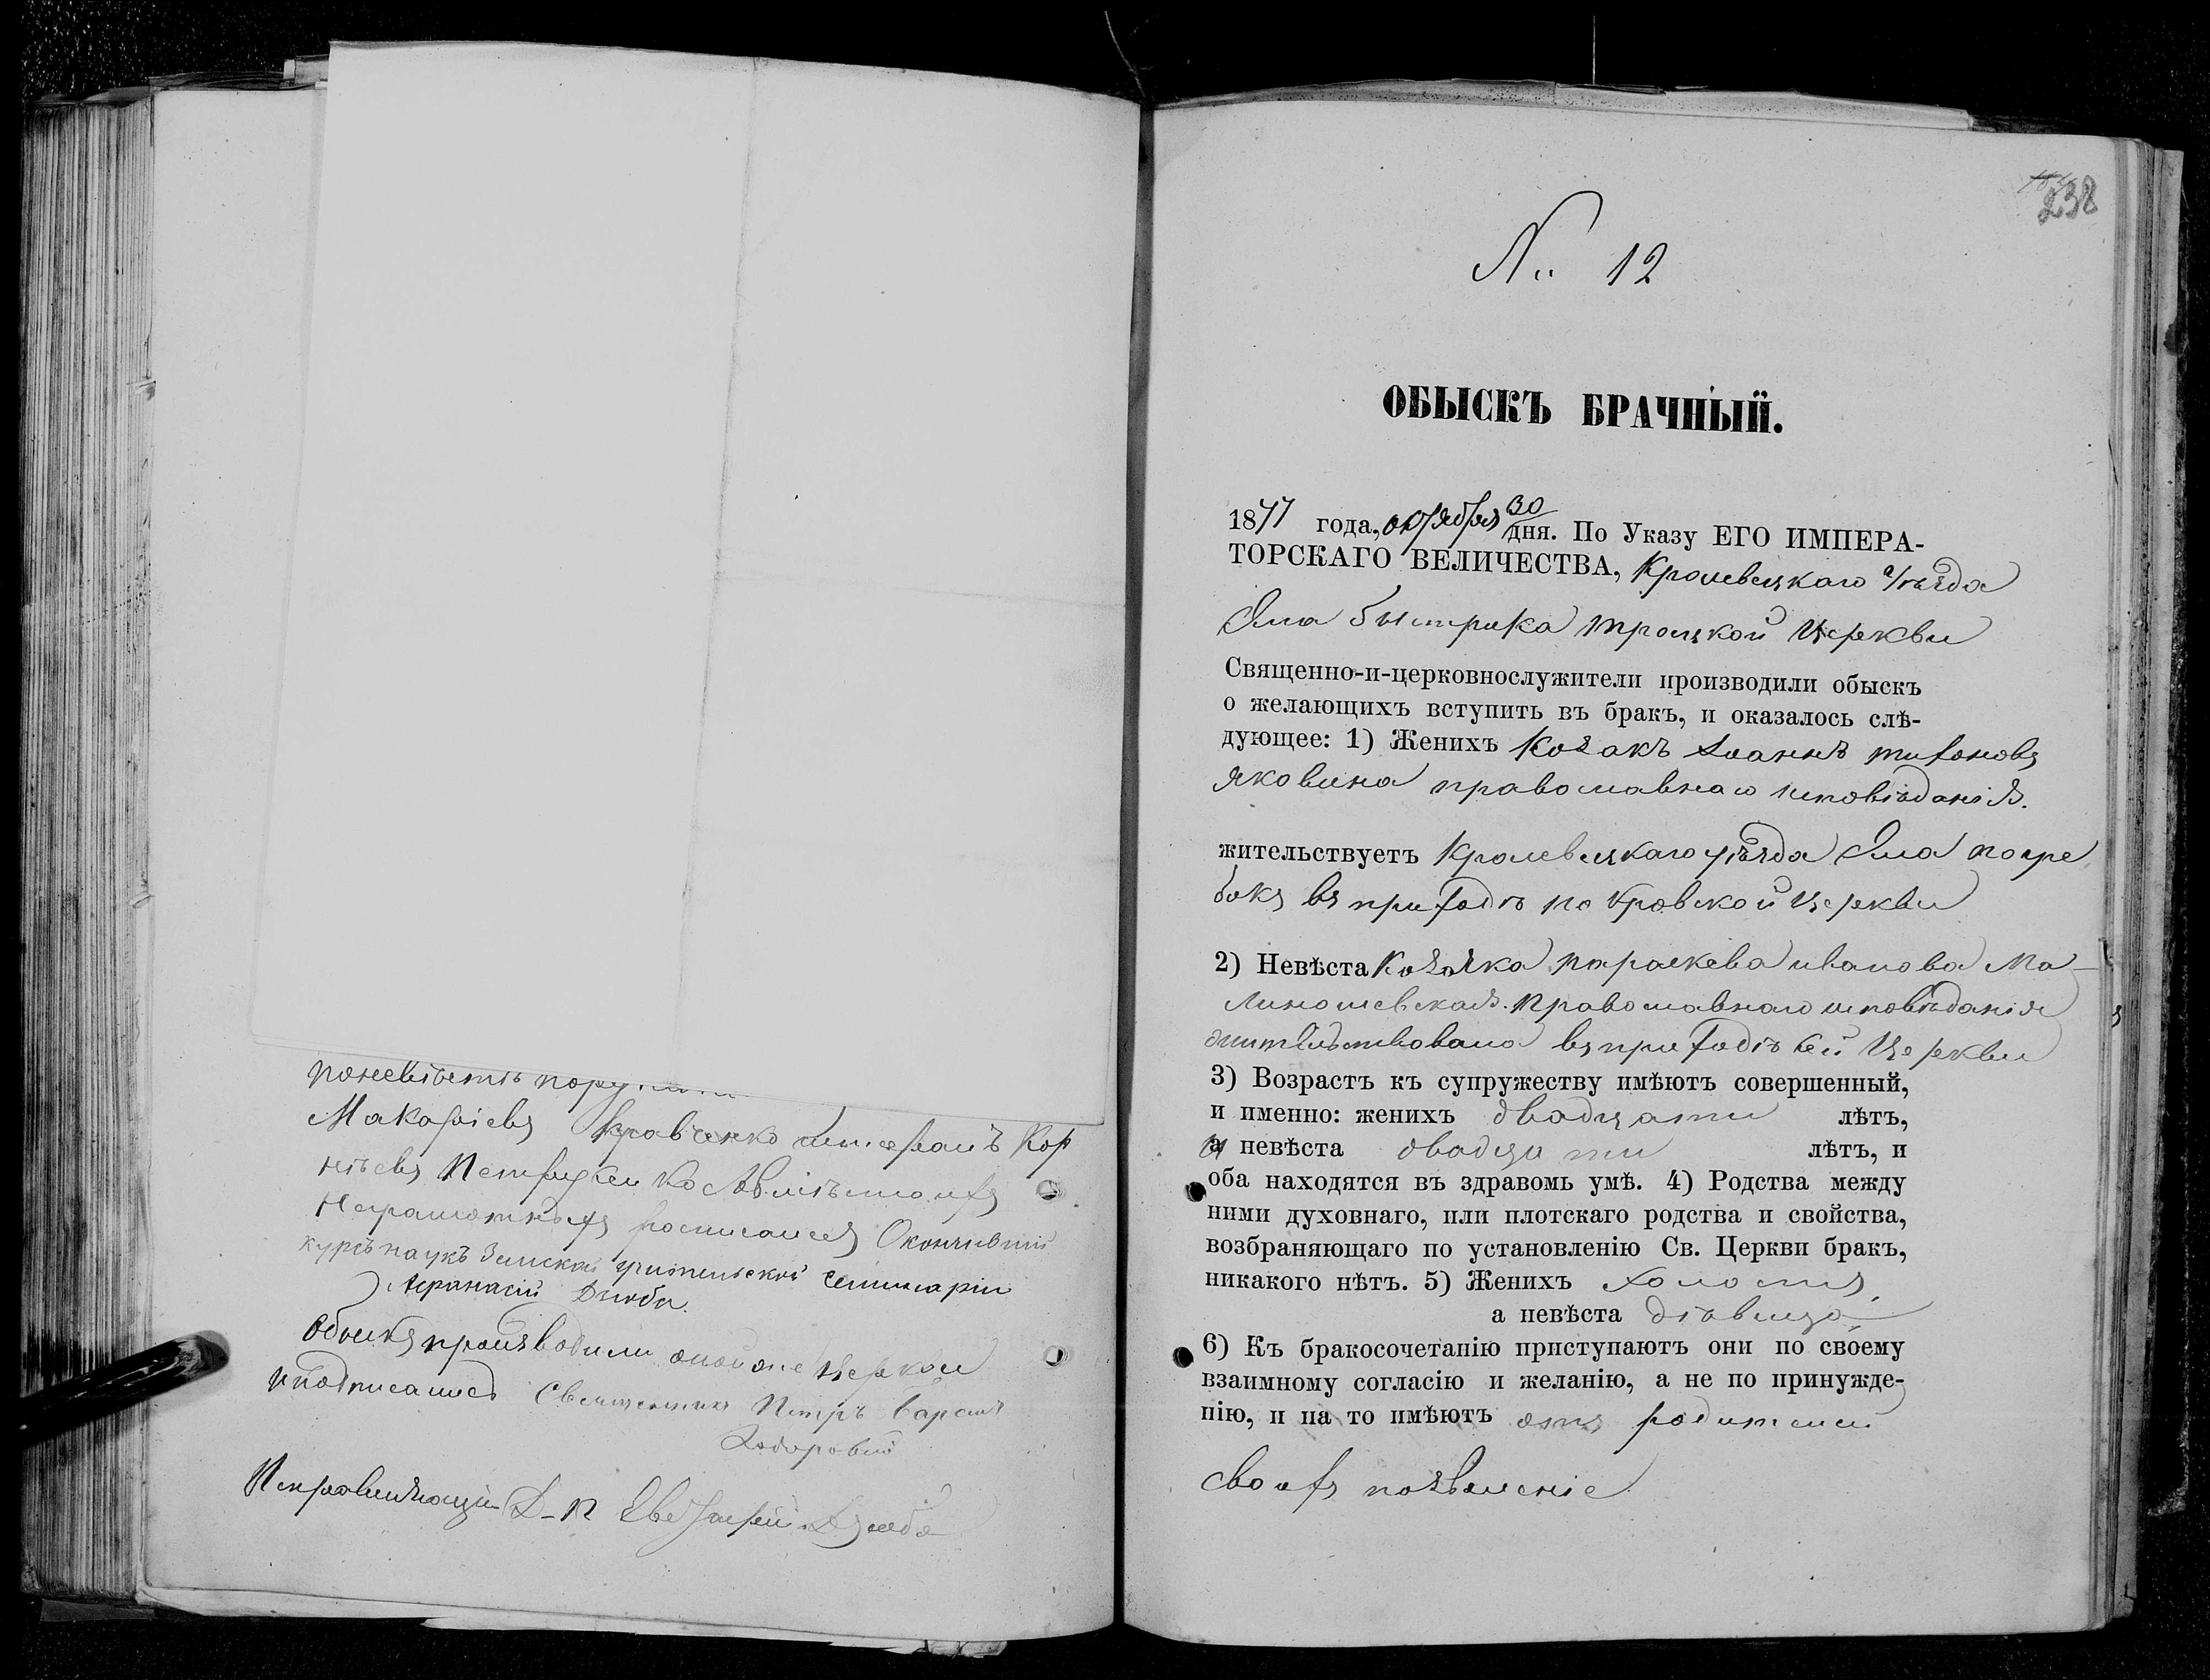 поневѣстѣ
Макаріевъ Кравченко Кор
нѣевъ Петрус
Неграмотныхъ росписался Окончившій
курсъ наукъ Земской учительской Семинаріи
Афанасій Дзюба.
Обыскъ производили оной же Церкви
иподписались Священникъ Петръ
Исправляющій Д-П Дзюба
238
№ 12
ОБЫСКЪ БРАЧНЫЙ.
1877 года, октября 30 дня. По Указу ЕГО ИМПЕРА-
ТОРСКАГО ВЕЛИЧЕСТВА, Кролевецкаго уѣзда
Села быстрика троицкой Церкви
Священно-и-церковнослужители производили обыскъ
о желающихъ вступить въ бракъ, и оказалось слѣ-
дующее: 1) Женихъ Козакъ Іоаннъ тихоновъ
яковина православнаго исповѣданія.
жительствуетъ Кролевецкаго уѣзда Села погре
бокъ въ приходѣ покровской Церкви
2) Невѣста Козачка параскева иванова Ма-
линошевская. православнаго исповѣданія
жительствовала въ приходѣ сей Церкви
3) Возрастъ къ супружеству имѣютъ совершенный,
и именно: женихъ двадцати лѣтъ,
а невѣста двадцати лѣтъ, и
оба находятся въ здравомъ умѣ. 4) Родства между
ними духовнаго, или плотскаго родства и свойства,
возбраняющаго по установленію Св. Церкви бракъ,
никакого нѣтъ. 5) Женихъ холостъ,
а невѣста дѣвица
6) Къ бракосочетанію приступаютъ они по своему
взаимному согласію и желанію, а не по принужде-
нію, и на то имѣютъ отъ родителей
своихъ позволеніе